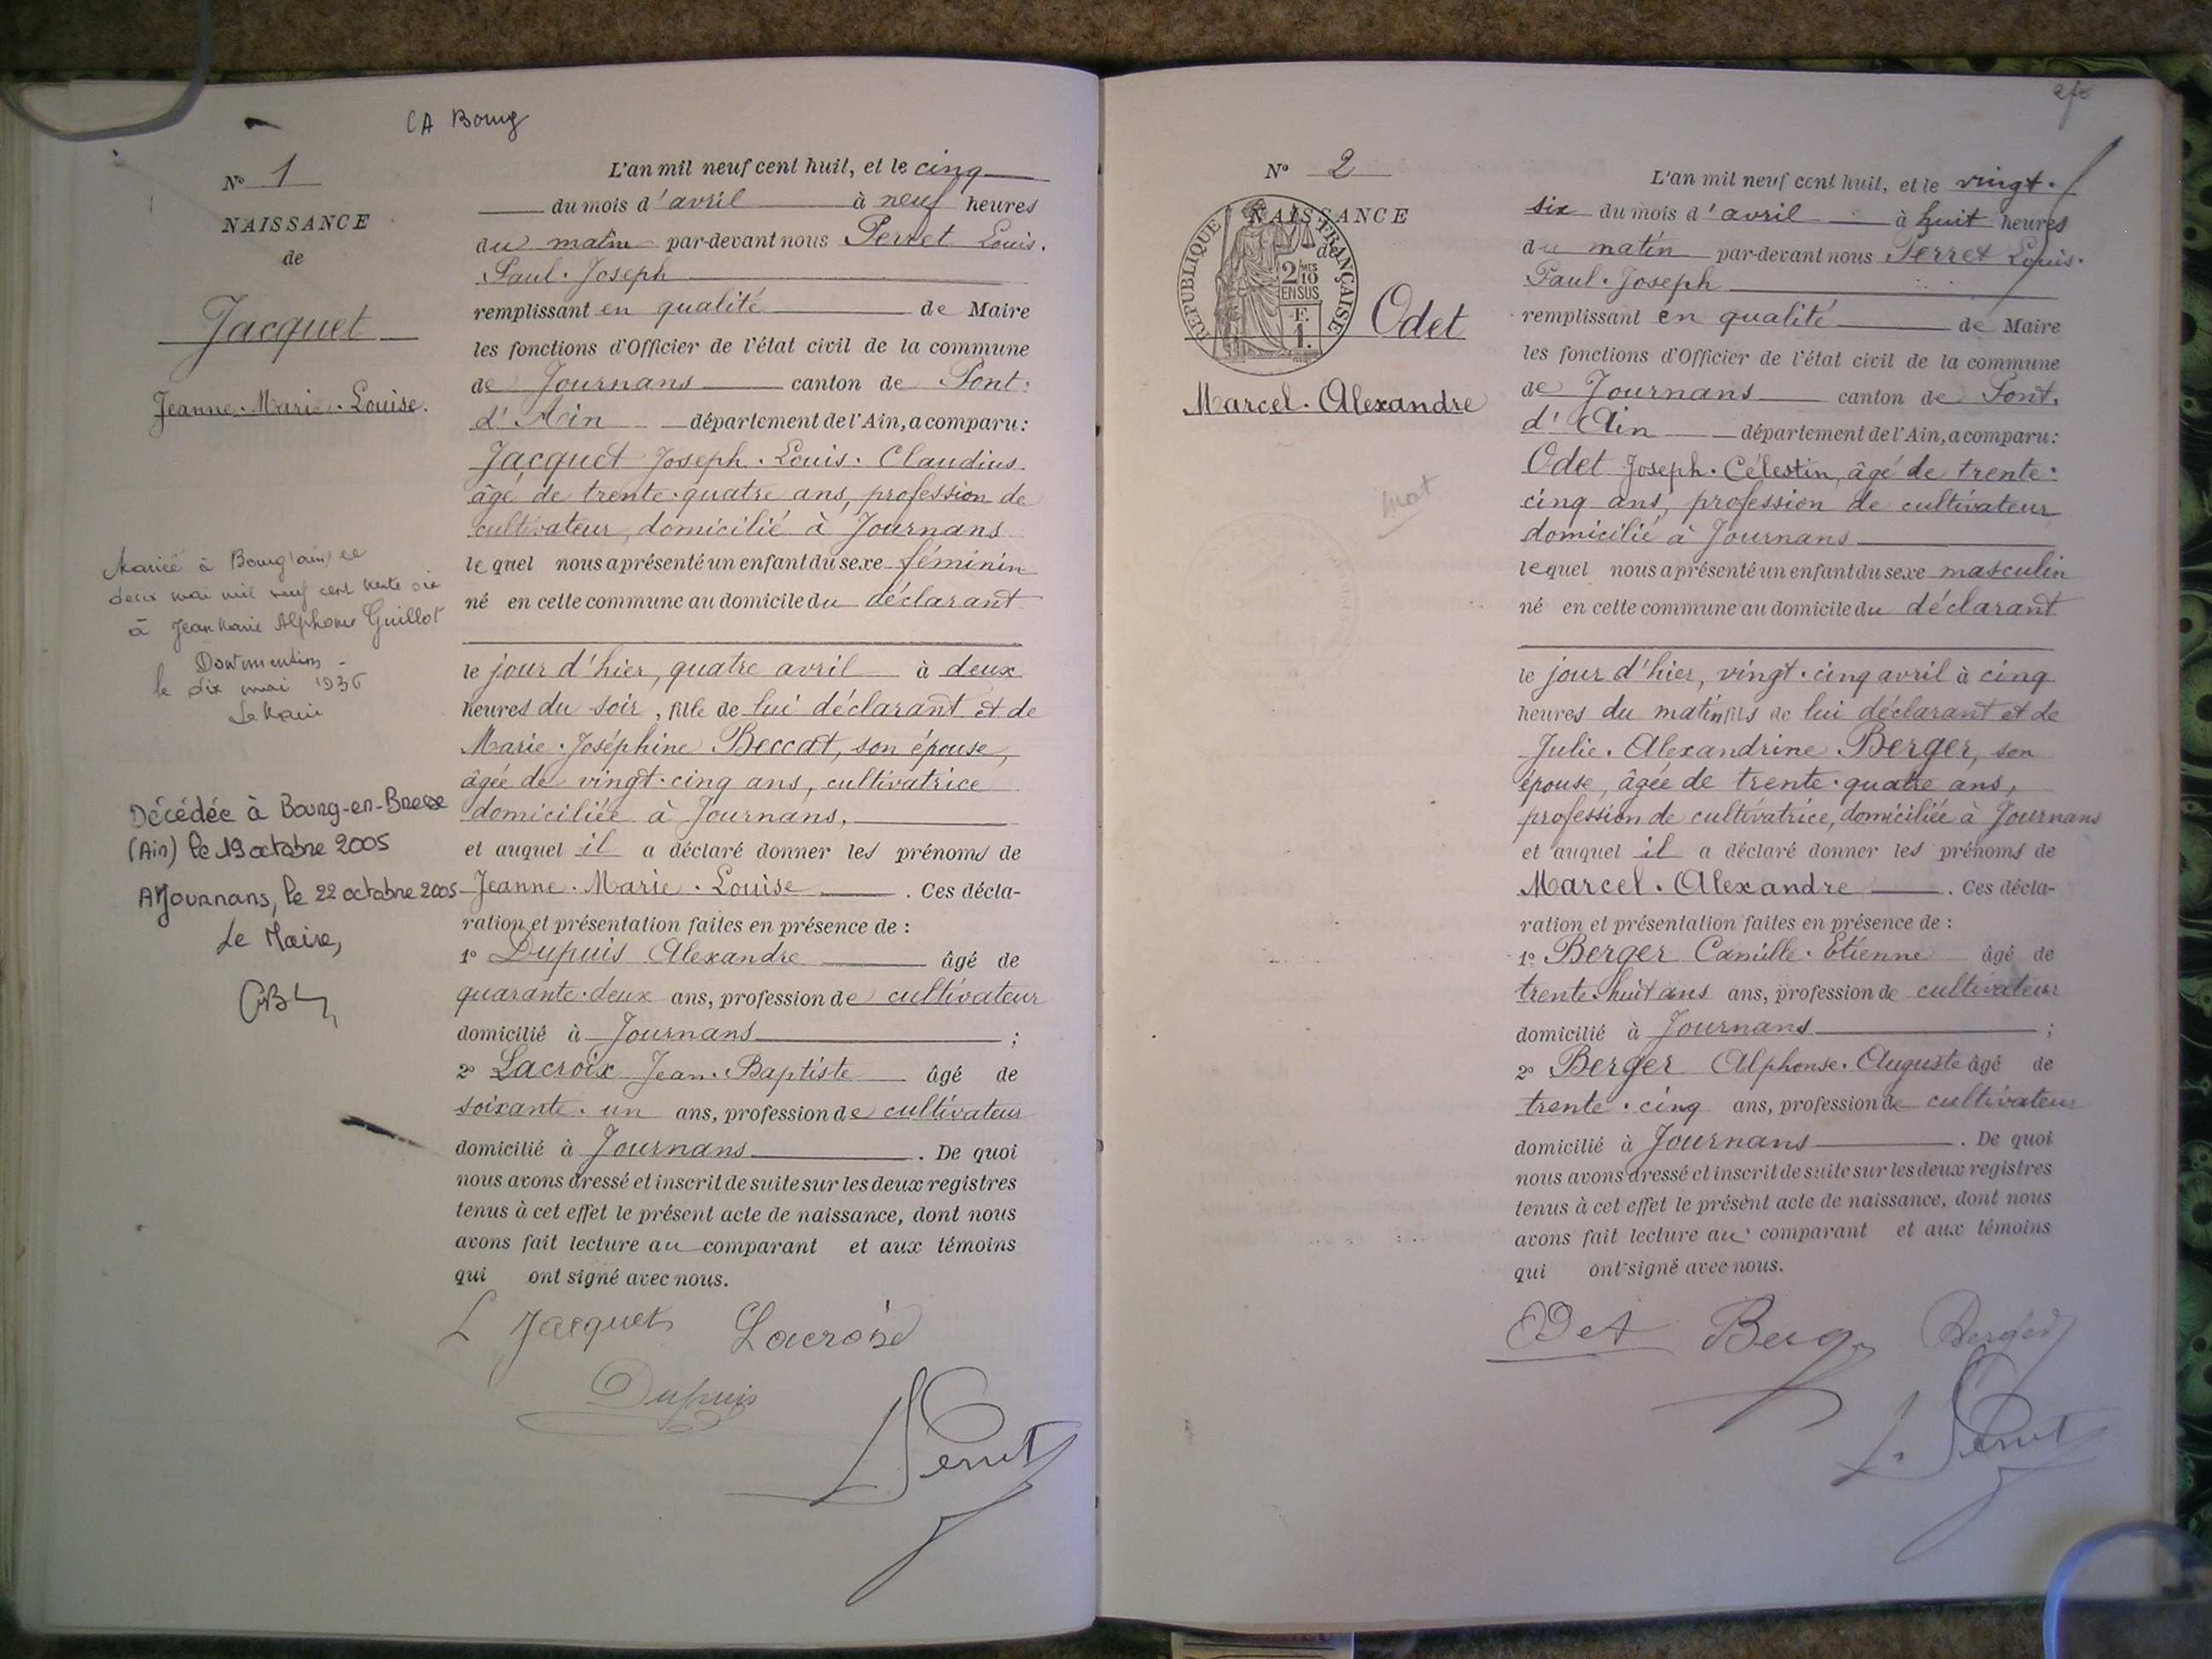 CA Bourg
N° 1
NAISSANCE
de
Jacquet
Jeanne. Marie. Louise.
Mariée à Bourg (ain) le
deux mai mil neuf cent trente six
à Jean Marie Alphonse Guillot
le dix mai 1936
Le Maire
Décédée à Bourg-en-Bresse
(Ain) le 19 octobre 2005
A Journans, le 22 octobre 2005
Le Maire,
L'an mil neuf cent huit, et le cinq
du mois d'avril à neuf heures
du matin par-devant nous Perret Louis.
Paul. Joseph
remplissant en qualité de Maire
les fonctions d'Officier de l'état civil de la commune
de Journans canton de Pont.
d'Ain département de l'Ain, a comparu:
Jacquet Joseph. Louis. Claudius
âgé de trente. quatre ans, profession de
cultivateur, domicilié à Journans
lequel nous a présenté un enfant du sexe féminin
né en cette commune au domicile du déclarant
le jour d'hier, quatre avril à deux
heures du soir, fille de lui déclarant et de
Marie. Joséphine Beccat, son épouse,
âgée de vingt. cinq ans, cultivatrice
domiciliée à Journans,
et auquel il a déclaré donner les prénoms de
Jeanne. Marie. Louise. Ces décla-
ration et présentation faites en présence de :
1° Dupuis Alexandre âgé de
quarante. deux ans, profession de cultivateur
domicilié à Journans ;
2° Lacroix Jean. Baptiste âgé de
soixante. un ans, profession de cultivateur
domicilié à Journans. De quoi
nous avons dressé et inscrit de suite sur les deux registres
tenus à cet effet le présent acte de naissance, dont nous
avons fait lecture au comparant et aux témoins
qui ont signé avec nous.
L Jacquet Lacroix
Dupuis
L Perret
N° 2
NAISSANCE
de
REPUBLIQUE FRANÇAISE
2/10 MES
EN SUS
F.
1.
Odet
Marcel. Alexandre
L'an mil neuf cent huit, et le vingt.
six du mois d'avril à huit heures
du matin par-devant nous Perret Louis.
Paul. Joseph
remplissant en qualité de Maire
les fonctions d'Officier de l'état civil de la commune
de Journans canton de Pont.
d'Ain département de l'Ain, a comparu:
Odet Joseph. Célestin, âgé de trente.
cinq ans, profession de cultivateur
domicilié à Journans
lequel nous a présenté un enfant du sexe masculin
né en cette commune au domicile du déclarant
le jour d'hier, vingt. cinq avril à cinq
heures du matin fils de lui déclarant et de
Julie. Alexandrine Berger, son
épouse, âgée de trente. quatre ans,
profession de cultivatrice, domiciliée à Journans
et auquel il a déclaré donner les prénoms de
Marcel. Alexandre. Ces décla-
ration et présentation faites en présence de :
1° Berger Camille. Etienne âgé de
trente. huit ans ans, profession de cultivateur
domicilié à Journans ;
2° Berger Alphonse. Auguste âgé de
trente. cinq ans, profession de cultivateur
domicilié à Journans. De quoi
nous avons dressé et inscrit de suite sur les deux registres
tenus à cet effet le présent acte de naissance, dont nous
avons fait lecture au comparant et aux témoins
qui ont signé avec nous.
Odet Berger Berger
L. Perret